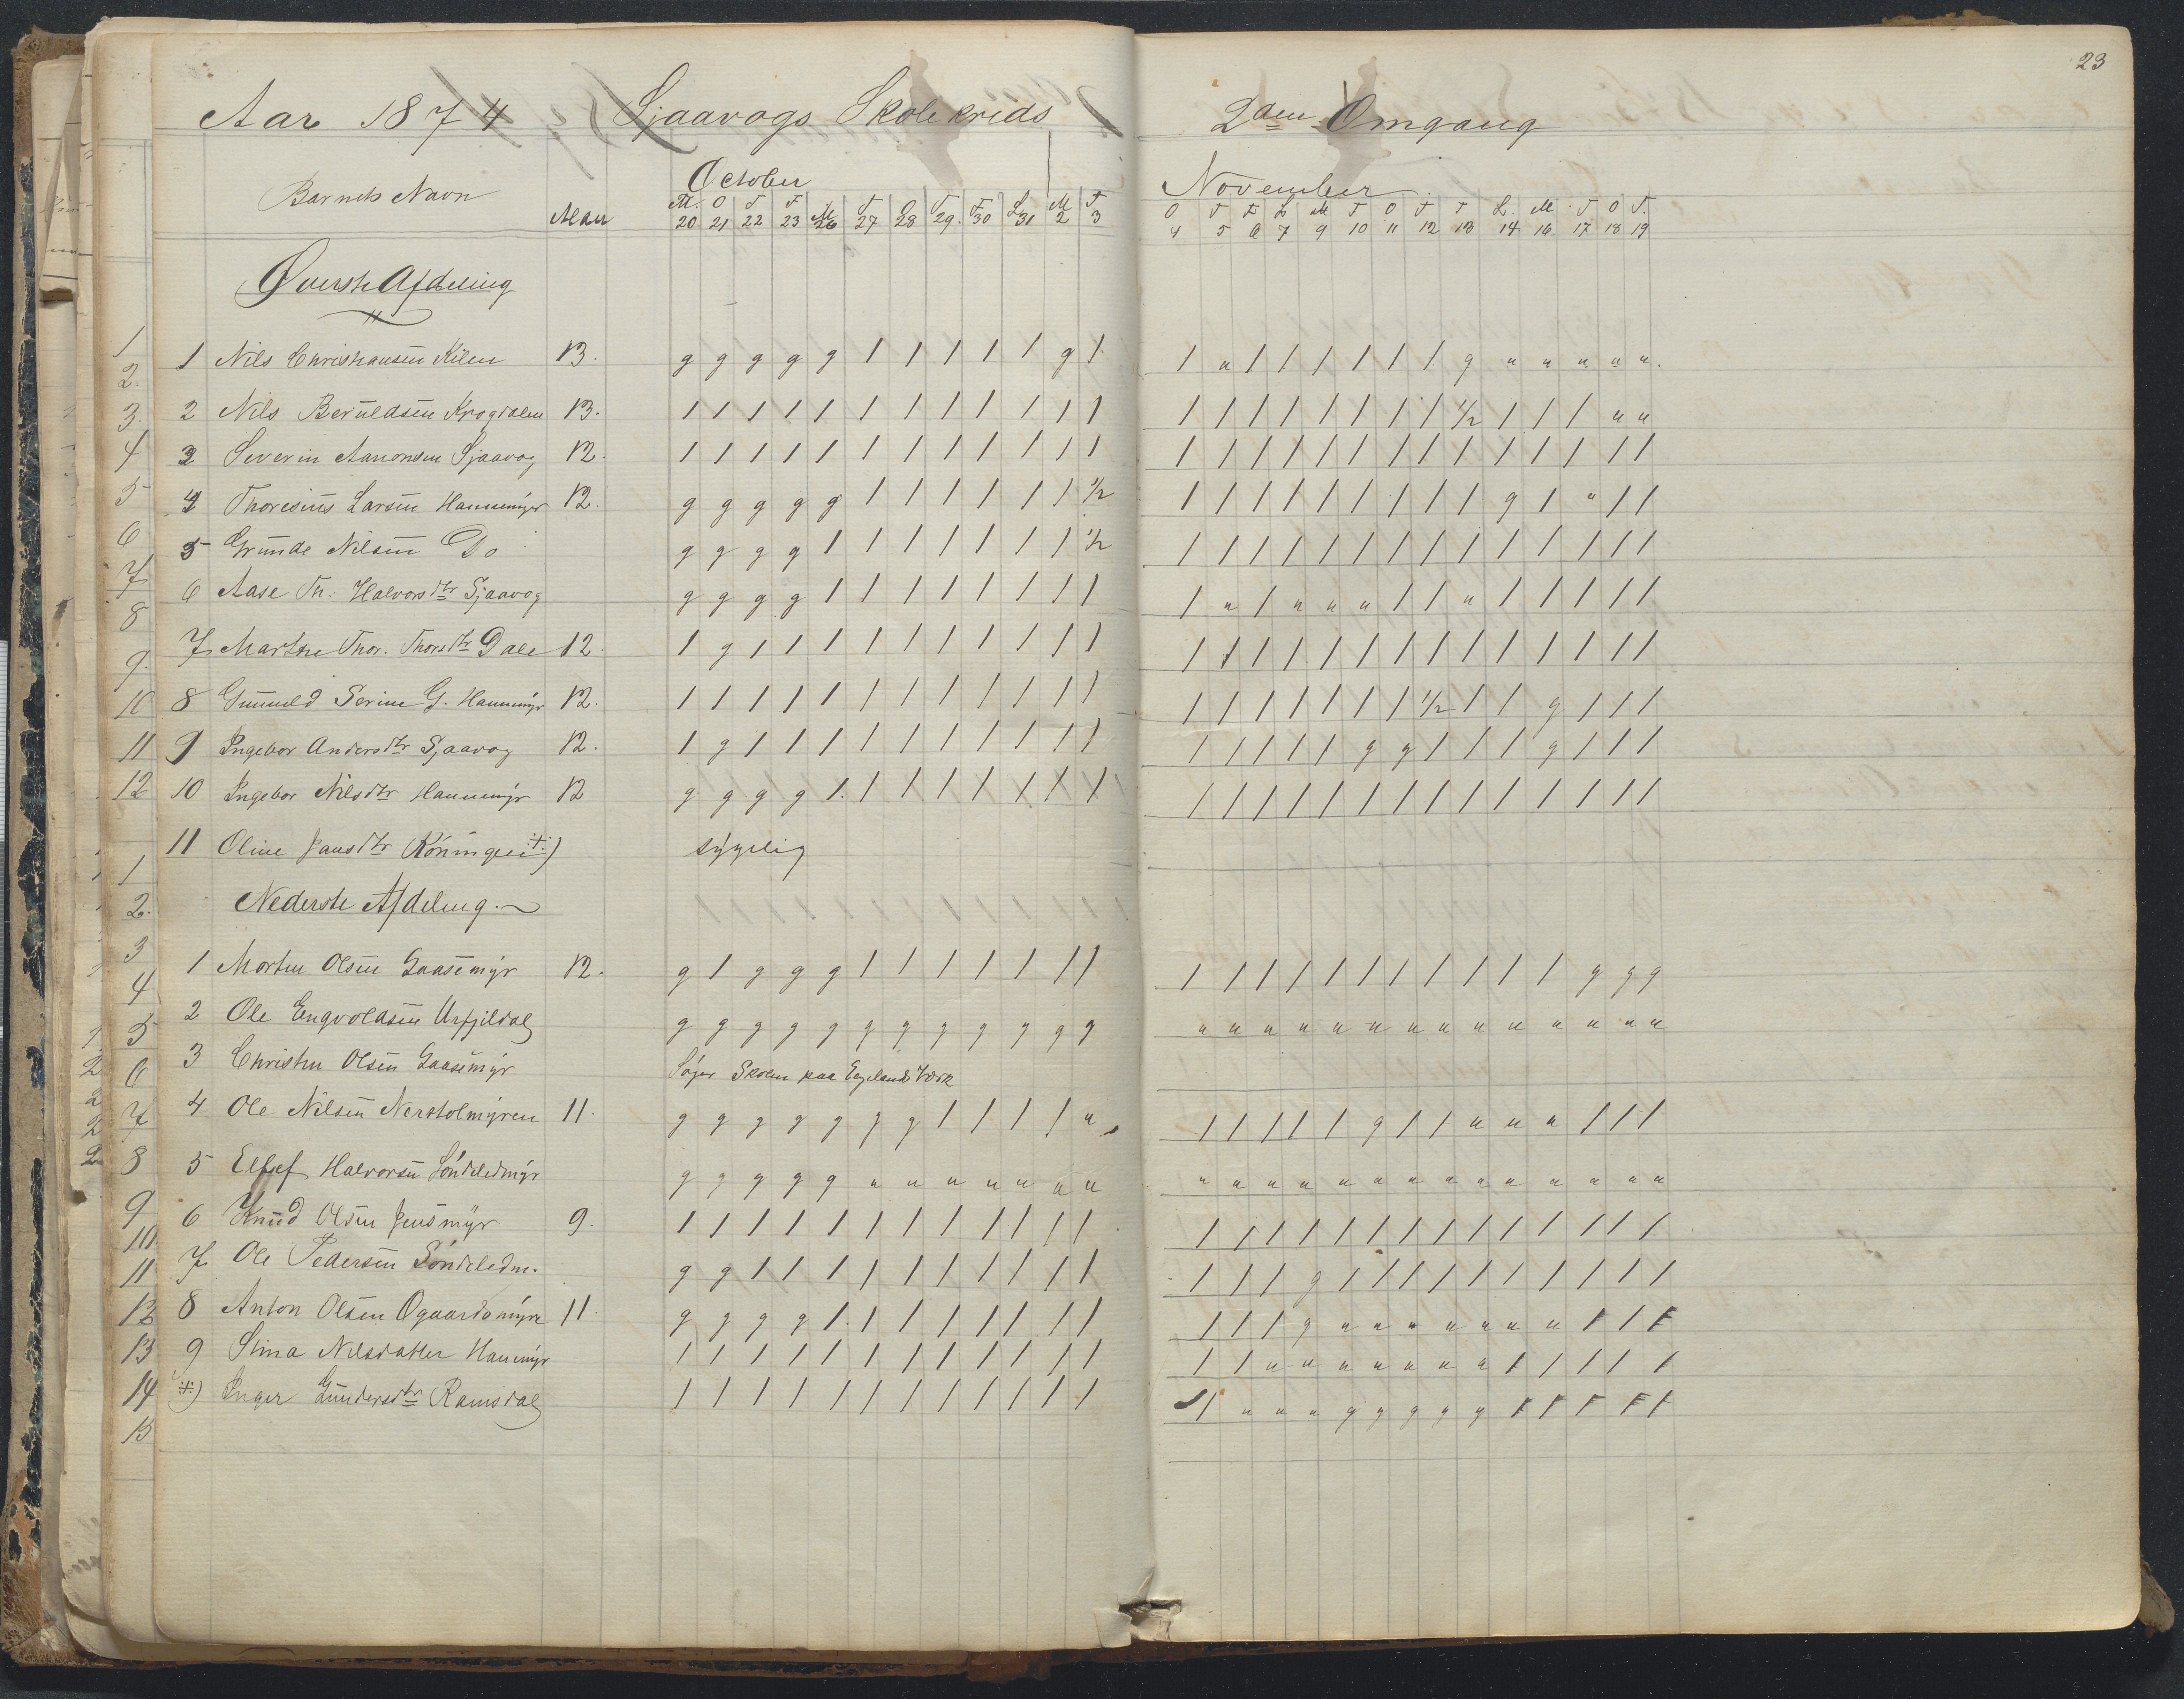 23
Aar 1874 Sjaavogs Skolekreds 2den Omgang
Barnets Navn Alder October November
T. O T F M T O T. F L M T O T F L M T O T F L. M T O T.
20 21 22 23 26 27 28 29. 30 31 2 3 4 5 6 7 9 10 11 12 13 14 16 17 18 19
Øverste Afdeling
1 Nils Christiansen Kilen 13. g g g g g 1 1 1 1 1 g 1 1 u 1 1 1 1 1 1 g u u u u u.
2 Nils Beruldsen Krogdalen 13. 1 1 1 1 1 1 1 1 1 1 1 1 1 1 1 1 1 1 1 1 1/2 1 1 1 u u
3 Severin Aanonsen Sjaavog 12. 1 1 1 1 1 1 1 1 1 1 1 1 1 1 1 1 1 1 1 1 1 1 1 1 1 1
4 Thoresius Larsen Hannemyr 12. g g g g g 1 1 1 1 1 1 1/2 1 1 1 1 1 1 1 1 1 g 1 u 1 1
5 Grunde Nilsen Do g g g g 1 1 1 1 1 1 1 1/2 1 1 1 1 1 1 1 1 1 1 1 1 1 1
6 Aase Th. Halvorsdtr Sjaavog g g g g 1 1 1 1 1 1 1 1 1 u 1 u u u 1 1 u 1 1 1 1 1
7 Marthe Thor. Thorsdtr Dale 12. 1 g 1 1 1 1 1 1 1 1 1 1 1 1 1 1 1 1 1 1 1 1 1 1 1 1
8 Gunuld Serine G. Hannemyr 12. 1 1 1 1 1 1 1 1 1 1 1 1 1 1 1 1 1 1 1 1/2 1 1 g 1 1 1
9 Ingebor Andersdtr Sjaavog 12. 1 g 1 1 1 1 1 1 1 1 1 1 1 1 1 1 1 g g 1 1 1 g 1 1 1
10 Ingebor Nilsdtr Hannemyr 12 g g g g 1. 1 1 1 1 1 1 1 1 1 1 1 1 1 1 1 1 1 1 1 1 1
11 Oline Jansdtr Röningen ÷) sygelig
Nederste Afdeling.
1 Morten Olsen Gaasemyr 12. g 1 g g g 1 1 1 1 1 1 1 1 1 1 1 1 1 1 1 1 1 1 g g g
2 Ole Engvoldsen Urfjeldal g g g g g g g g g g g g u u u u u u u u u u u u u u
3 Christen Olsen Gaasemyr Søger Skolen paa Egelands Værk
4 Ole Nilsen Nerstolmyren 11. g g g g g g g 1 1 1 1 u 1 1 1 1 1 g 1 1 u u u 1 1 1
5 Ellef Halvorsen Söndeledmyr g g g g g u u u u u u u u u u u u u u u u u u u u u
6 Knud Olsen Jensmyr 9. 1 1 1 1 1 1 1 1 1 1 1 1 1 1 1 1 1 1 1 1 1 1 1 1 1 1
7 Ole Pedersen Söndeledm. g g 1 1 1 1 1 1 1 1 1 1 1 1 1 g 1 1 1 1 1 1 1 1 1 1
8 Anton Olsen Øgaardsmyre 11. g g g g 1. 1 1 1 1 1 1 1 1 1 1 g u u u u u u u 1 1 1
9 Stina Nilsdatter Hannemyr 1 1 1 1 1 1 1 1 1 1 1 1 1 1 u u u u u u u 1 1 1 1 1
÷) Inger Gundersdtr Ramsdal 1 1 1 1 1 1 1 1 1 1 1 1 1 u u u g g g g g 1 1 1 1 1
1
2.
3.
4
5
6
7
8
9.
10
11
12
1
2.
3
4
5
6
7
8
9
10.
11
12
13
14
15